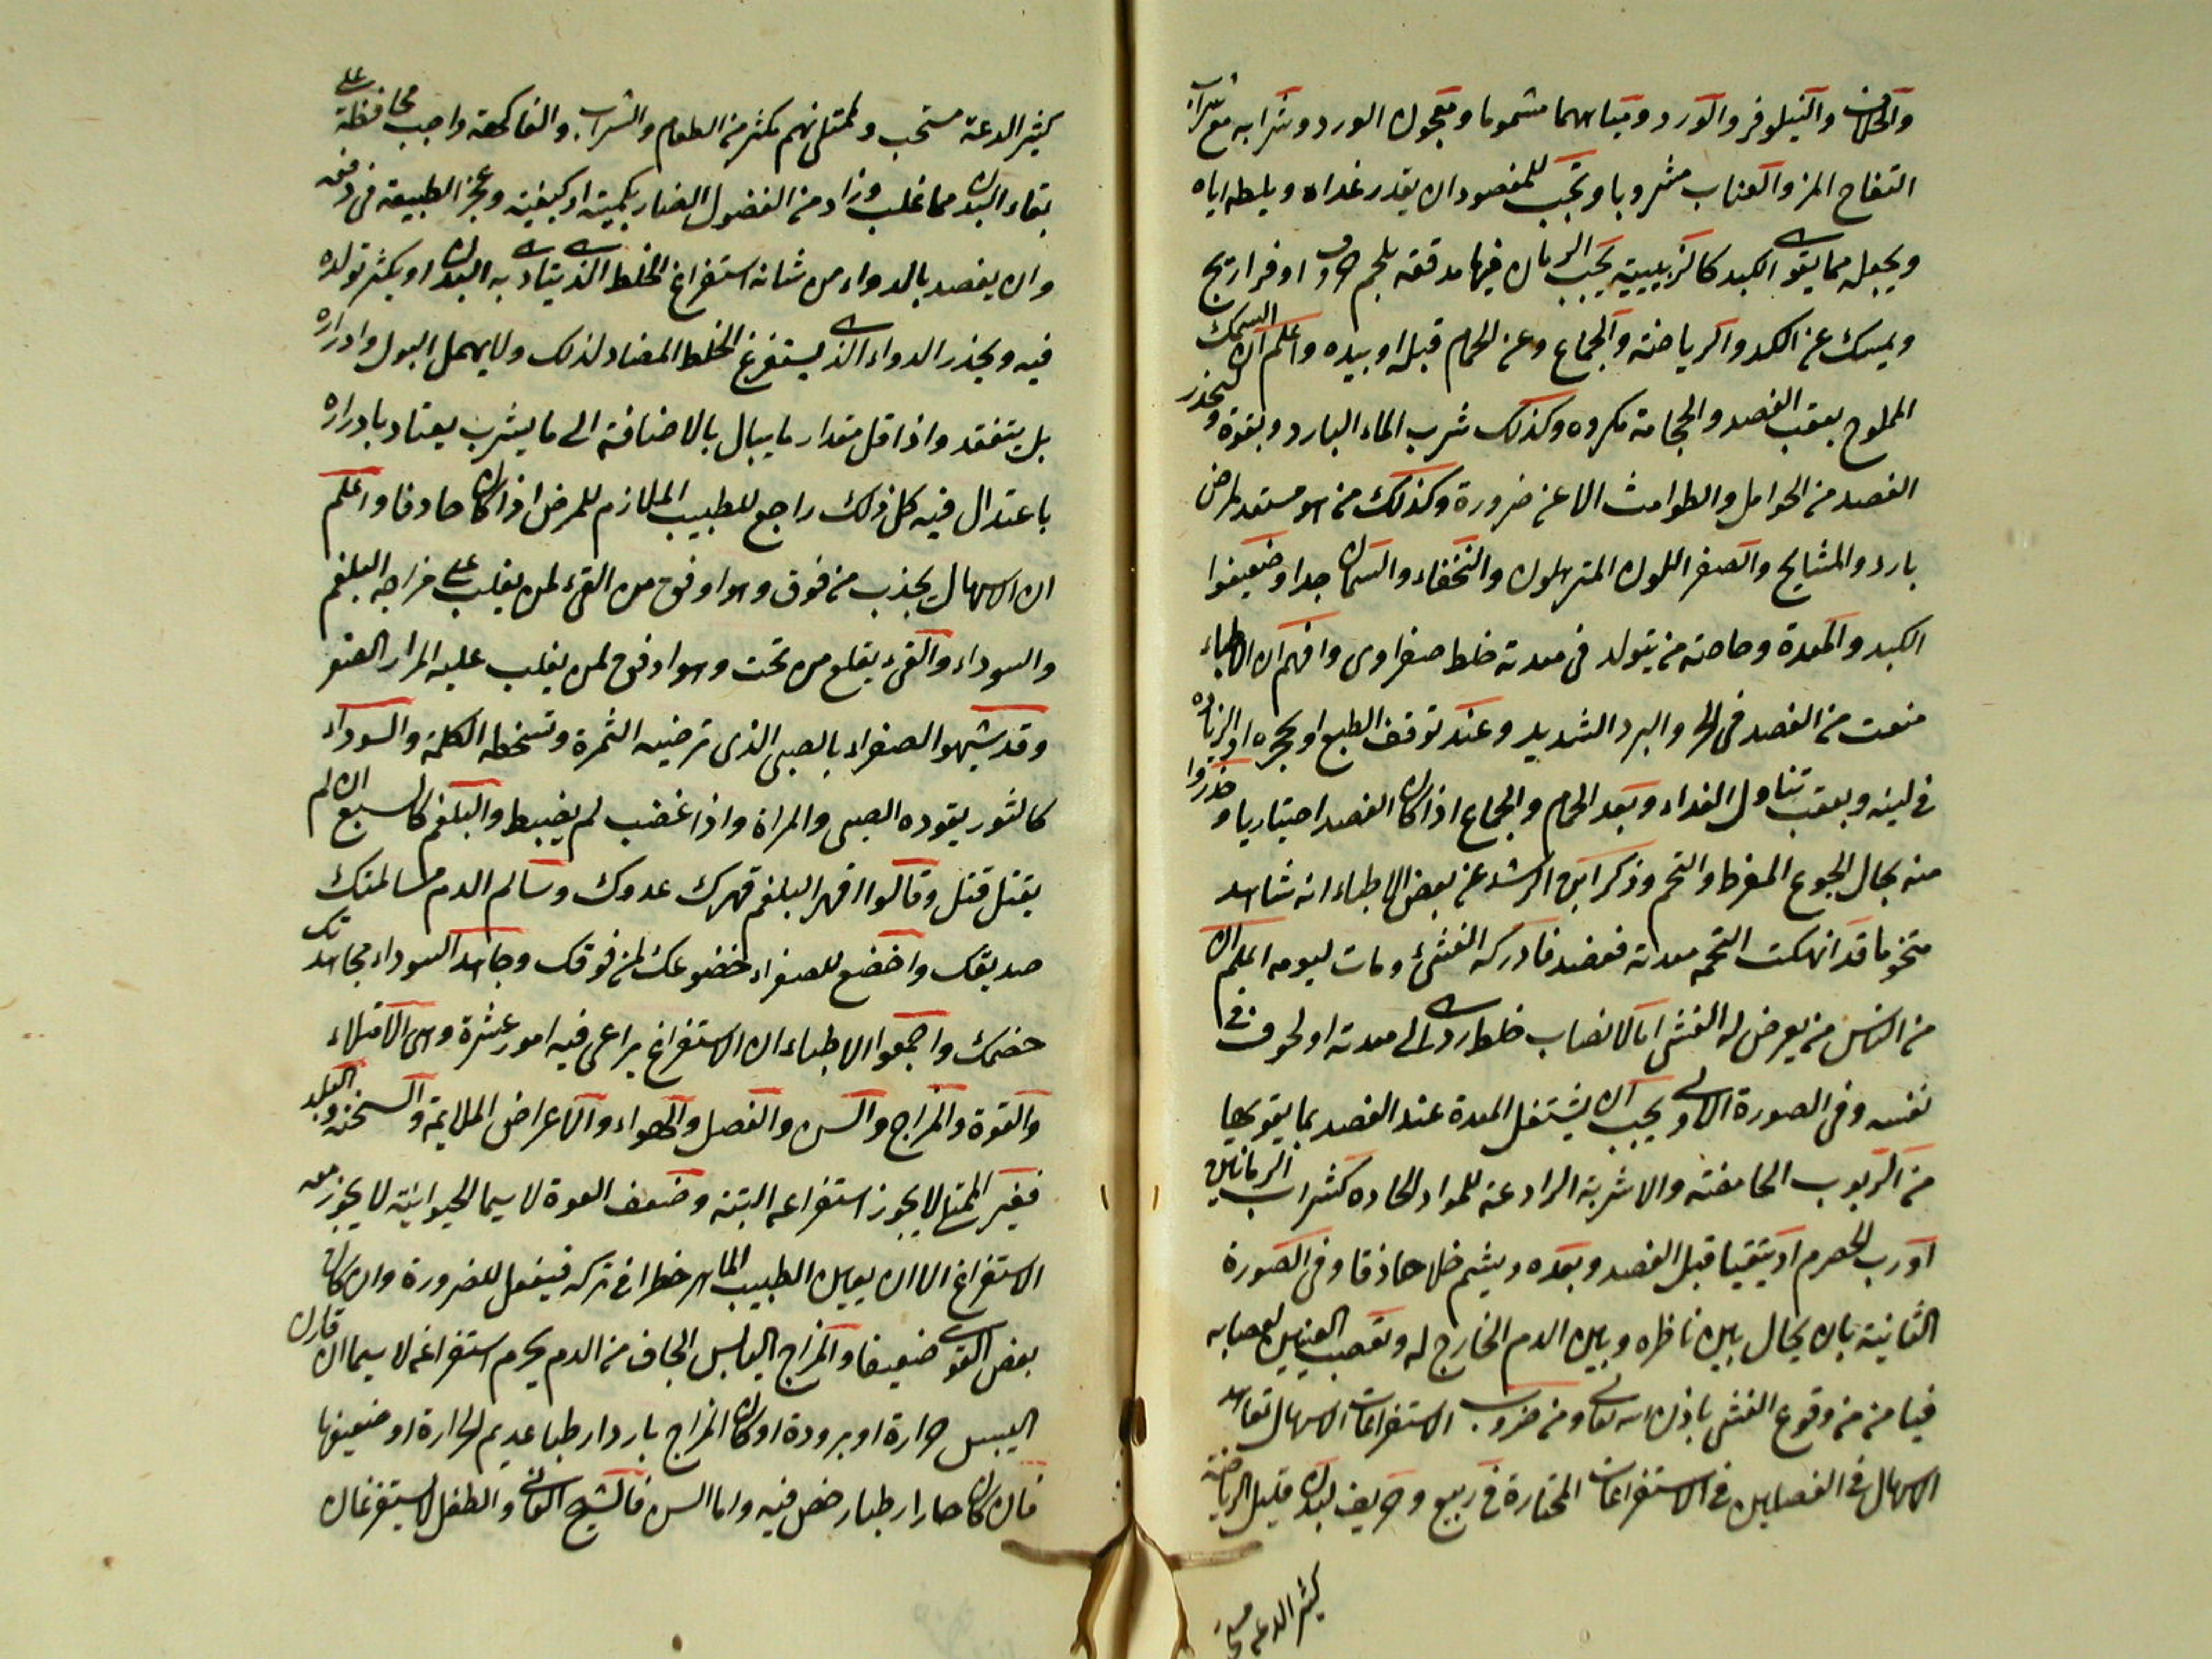 والخلاف والنيلوفر والورد ومياههما مشموما ومعجون الورد وشرابه مع شراب
التفاح المز والعناب مشروبا ويجب للمفصود ان يقدر غداه ويلطه اياه
ويجعل مما يقوى الكبد كالزبيبية بحب الرمان فيها مدققه بلحم خروف او فراريج
ويمسك عن الكد والرياضة والجماع وعن الحمام قبله او بيده واعلم ان السمك
المملوح بعقب الفصد والحجامة مكروه وكذلك شرب الماء البارد وبقوة ويحذر
الفصد من الحوامل والطوامث الا عن ضرورة وكذلك من هو مستعد لمرض
بارد والمشايخ والصفر اللون المترهلون والنحفاء والسمان جدا وضعيفوا
الكبد والمعدة وخاصة من يتولد في معدته خلط صفراوى وافهم ان الاطباء
منعت من الفصد في الحر والبرد الشديد وعند توقف الطبع او تحجره او الزياده
في لينه وبعقب تناول الغداء وبعد الحمام والجماع اذا كان الفصد اختياريا وحذروا
منه بحال الجوع المفرط والتخم وذكر ابن الرشد عن بعض الاطباء انه شاهد
متخوما قد انهكت التخمه معدته ففصد فادركه الغشى ومات ليومه اعلم ان
من الناس من يعرض له الغشى اما لانصاب خلط ردى الى معدته او لخوف في
نفسه وفى الصورة الاولى يجب ان يشتغل المعدة عند الفصد بما يقويها
من الربوب الحامضة والاشربة الرادعة للمواد الحاده كشراب الرمانين
او رب الحصرم او يتقيا قبل الفصد وبعده ويشم خلا حاذقا وفى الصورة
الثانية بان يحال بين ناظره وبين الدم الخارج له وتعصب العينين بعصابه
فيامن من وقوع الغشى باذن الله تعالى ومن ضروب الاستفراغات الاسهال تعاهد
الاسهال في الفصلين في الاستفراغات المختارة في ربيع وخريف لبدن قليل الرياضة
كثير الدعه مستحب
كثير الدعة مستحب ولممتلئ نهم مكثر من الطعام والشراب والفاكهة واجب محافظة على
بقاء البدن مما غلب وزاد من الفضول الضار بكميته او كيفيته وعجز الطبيعة في دفعه
وان يقصد بالدواء من شانه استفراغ الخلط الذى يتاذى به البدن او يكثر تولده
فيه ويحذر الدواء الذى يستفرغ الخلط المضاد لذلك ولا يهمل البول وادراره
بل يتفقد واذا قل مقدار ما يبال بالاضافة الى ما يشرب يعتاد بادراره
باعتدال فيه كل ذلك راجع للطبيب الملازم للمرض اذا كان حاذقا واعلم
ان الاسهال يجذب من فوق وهو اوفق من القئ لمن يغلب على مزاجه البلغم
والسوداء والقئ يقلع من تحت وهو اوفق لمن يغلب عليه المرار الصفر
وقد شبهوا الصفراء بالصبى الذى ترضيه الثمرة وتسخطه الكلمة والسوداء
كالثور يقوده الصبى والمراة واذا غضب لم يضبط والبلغم كالسبع ان لم
يقتل قتل وقالوا اقهر البلغم قهرك عدوك وسالم الدم مسالمتك
صديقك واخضع للصفراء خضوعك لمن فوقك وجاهد السوداء مجاهدتك
خصمك واجمعوا الاطباء ان الاستفراغ يراعى فيه امور عشرة وهى الامتلاء
والقوة والمزاج والسن والفصل والهواء والاعراض الملائمة والسخنة والبلد
فغير الممتلا لا يجوز استفراغه البتة وضعف القوة لا سيما الحيوانية لا يجوز معه
الاستفراغ الا ان يعاين الطبيب الماهر خطرا في تركه فيفعل للضرورة وان كان
بعض القوى ضعيفا والمزاج اليابس الجاف من الدم يحرم استفراغه لا سيما ان قارن
اليبس حرارة او برودة او كان المزاج باردا رطبا عديم الحرارة او ضعيفها
فان كان حارا رطبا رخص فيه واما السن فالشيخ الفانى والطفل لا يستفرغان